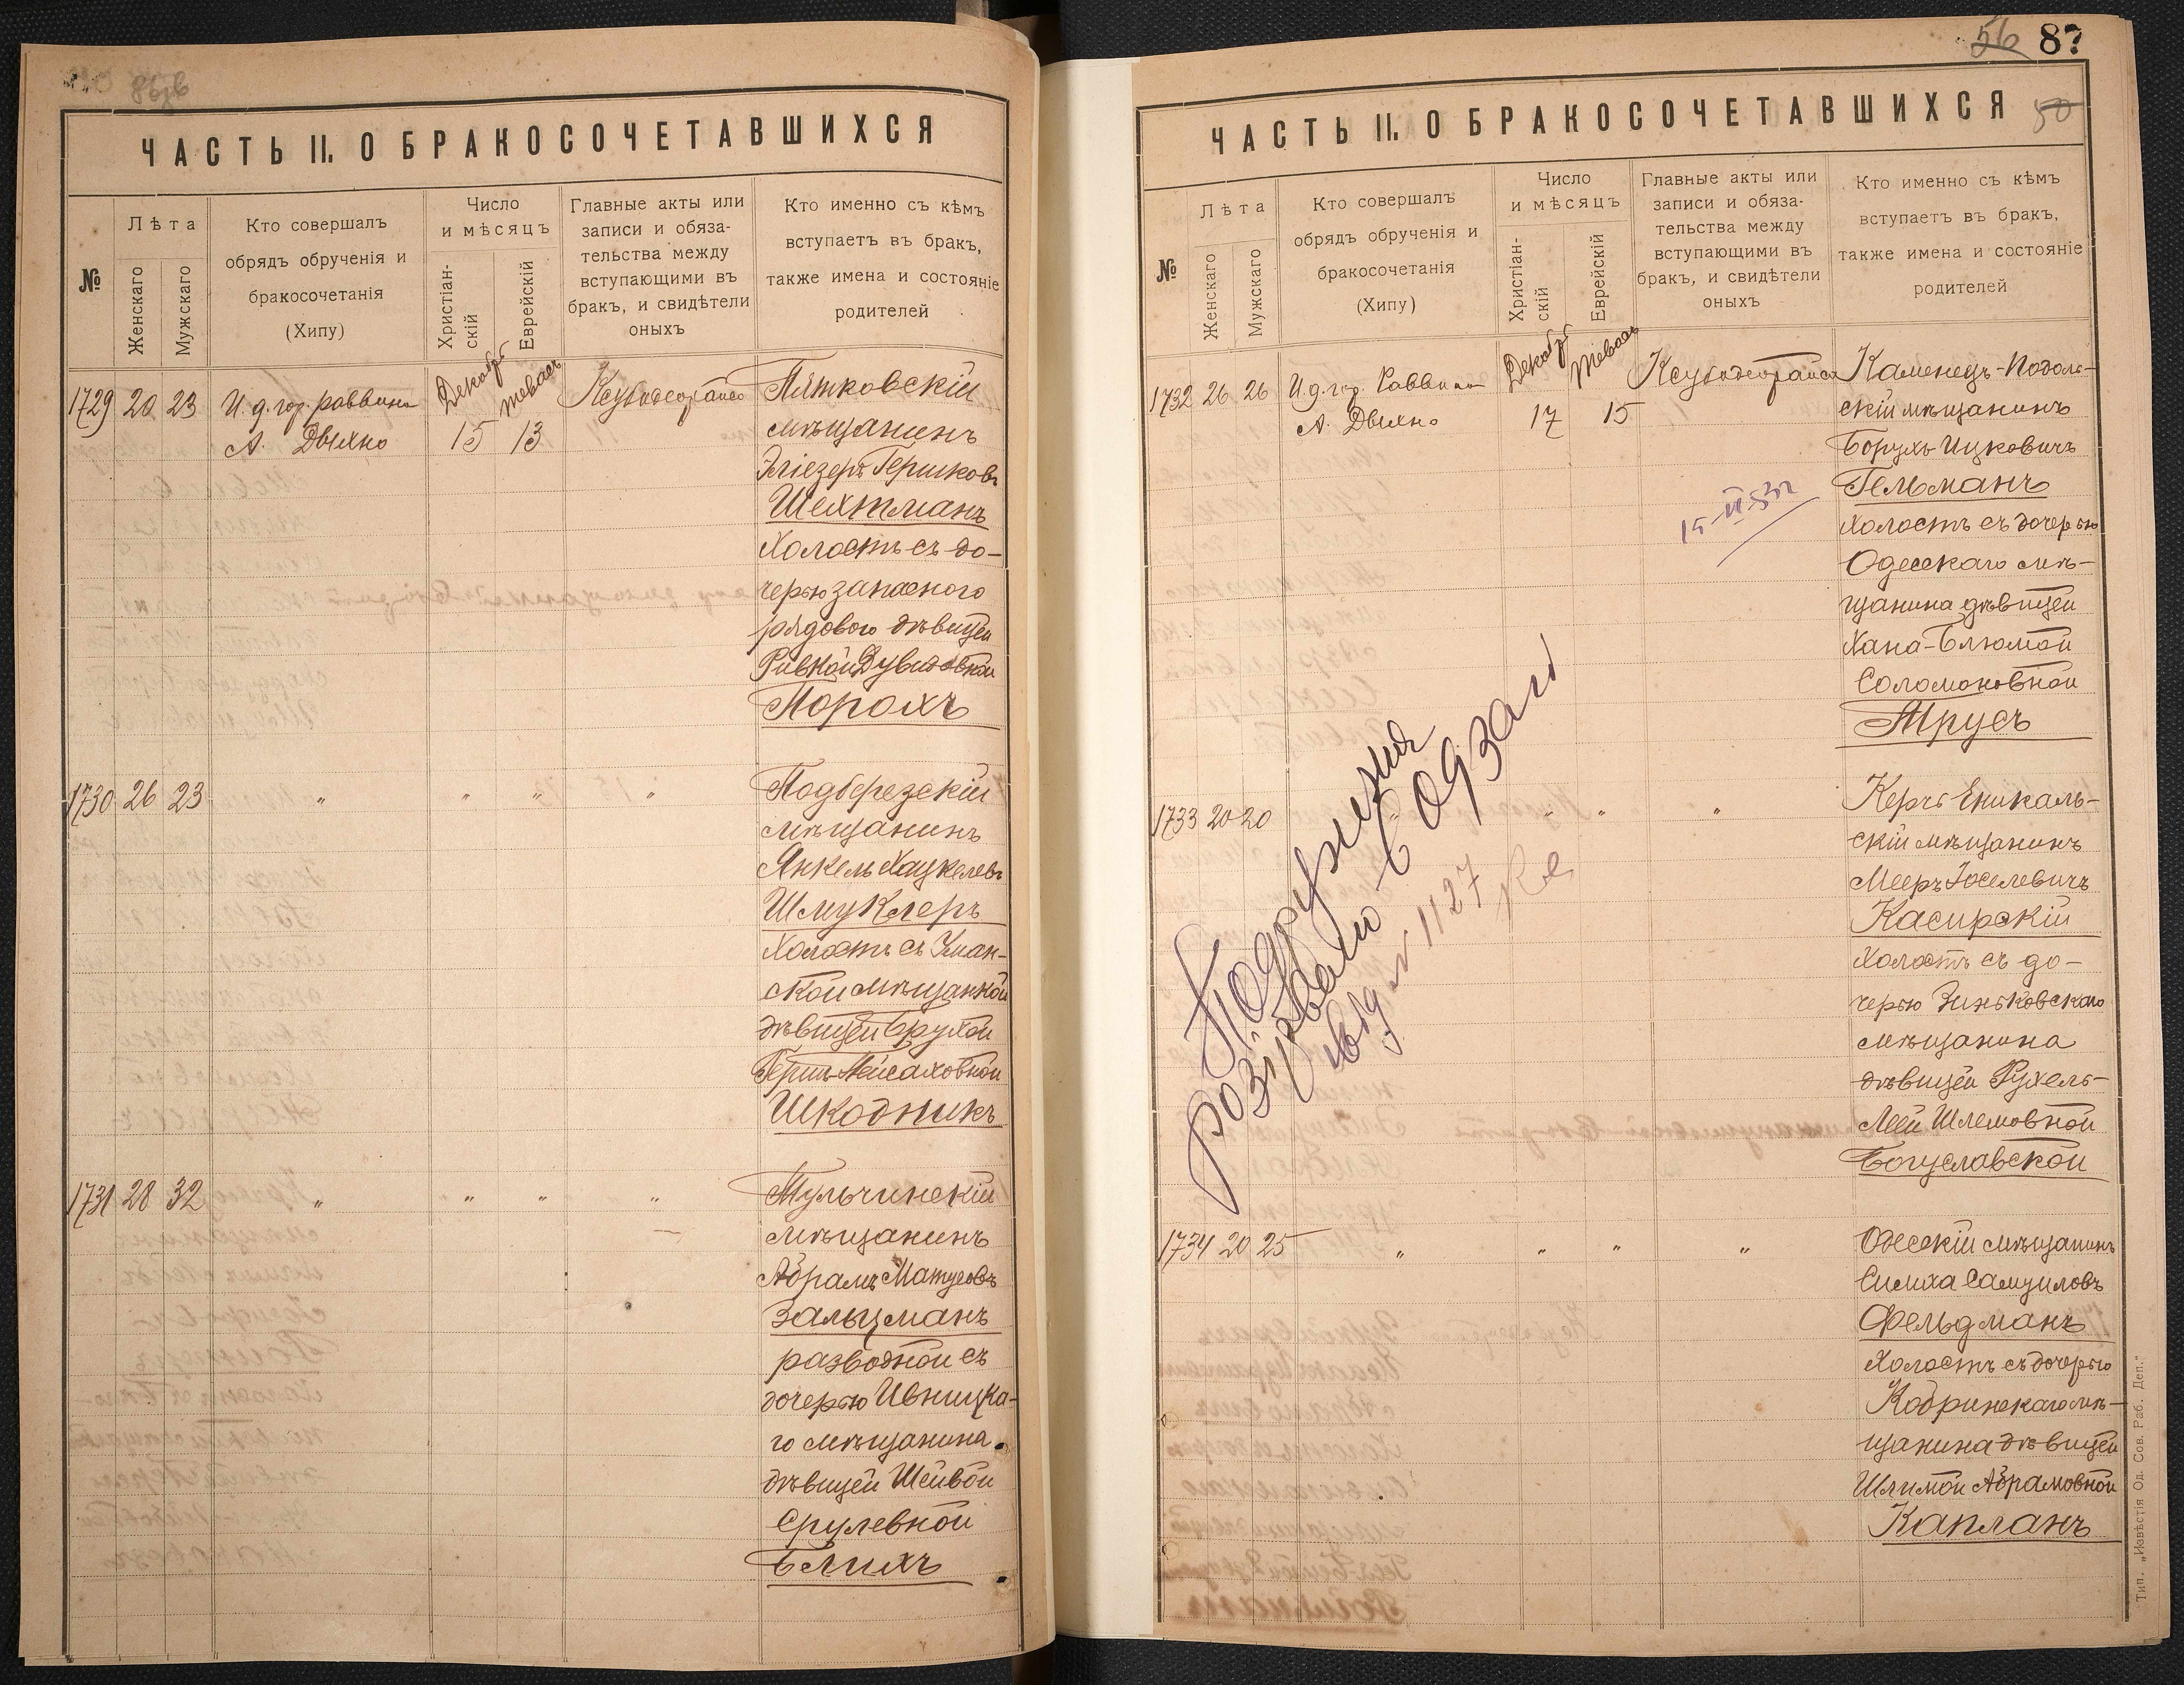 ЧАСТЬ II. О БРАКОСОЧЕТАВШИХСЯ
№
Лѣта
Женскаго
Мужскаго
Кто совершалъ
обрядъ обрученія и
бракосочетанія
(Хипу)
Число
и мѣсяцъ
Христіан-
скій
Еврейскій
Главные акты или
записи и обяза-
тельства между
вступающими въ
бракъ, и свидѣтели
оныхъ
Кто именно съ кѣмъ
вступаетъ въ бракъ,
также имена и состояніе
родителей
1729 20 23
И. д. гор. раввина
А. Дыхно
Декабр
15
тевасъ
13
Пятковскій
мѣщанинъ
Эліезеръ Гершковъ
Шехтманъ
холостъ съ до-
черью запасного
рядового дѣвицей
Ривкой Дувидовной
Порохъ
1730 26 23 " " " "
Подберезскій
мѣщанинъ
Янкель Хацкелевъ
Шмуклеръ
холостъ съ Уман-
ской мѣщанкой
дѣвицей Брухой
Гершъ-Пейсаховной
Шкодникъ
1731 28 32 " " " "
Тульчинскій
мѣщанинъ
Абрамъ Матусовъ
Зальцманъ
разводной съ
дочерью Ивницка-
го мѣщанина
дѣвицей Шейвой
Срулевной
Блихъ
56 87
ЧАСТЬ II. О БРАКОСОЧЕТАВШИХСЯ
50
№
Лѣта
Женскаго
Мужскаго
Кто совершалъ
обрядъ обрученія и
бракосочетанія
(Хипу)
Число
и мѣсяцъ
Христіан-
скій
Еврейскій
Главные акты или
записи и обяза-
тельства между
вступающими въ
бракъ, и свидѣтели
оныхъ
Кто именно съ кѣмъ
вступаетъ въ бракъ,
также имена и состояніе
родителей
1732 26 26
И. д. гор. Раввина
А. Дыхно
Декабр
17
тевасъ
15
Каменецъ-Подоль-
скій мѣщанинъ
Борухъ Ицковичъ
Гельманъ
холостъ съ дочерью
Одесскаго мѣ-
щанина дѣвицей
Хана-Блюмой
Соломоновной
Трусъ
1733 20 20 " " "
Керчь Еникаль-
скій мѣщанинъ
Мееръ Іоселевичъ
Касирскій
холостъ съ до-
черью Зиньковскаго
мѣщанина
дѣвицей Рухель-
Леей Шлемовной
Богуславской
Подружжя
розірвано
1127
1734 20 25 " " " "
Одесскій мѣщанинъ
Симха Самуиловъ
Фельдманъ
холостъ съ дочерью
Кобринскаго мѣ-
щанина дѣвицей
Шлимой Абрамовной
Капланъ
Тип. „Извѣстія Од. Сов. Раб. Деп."